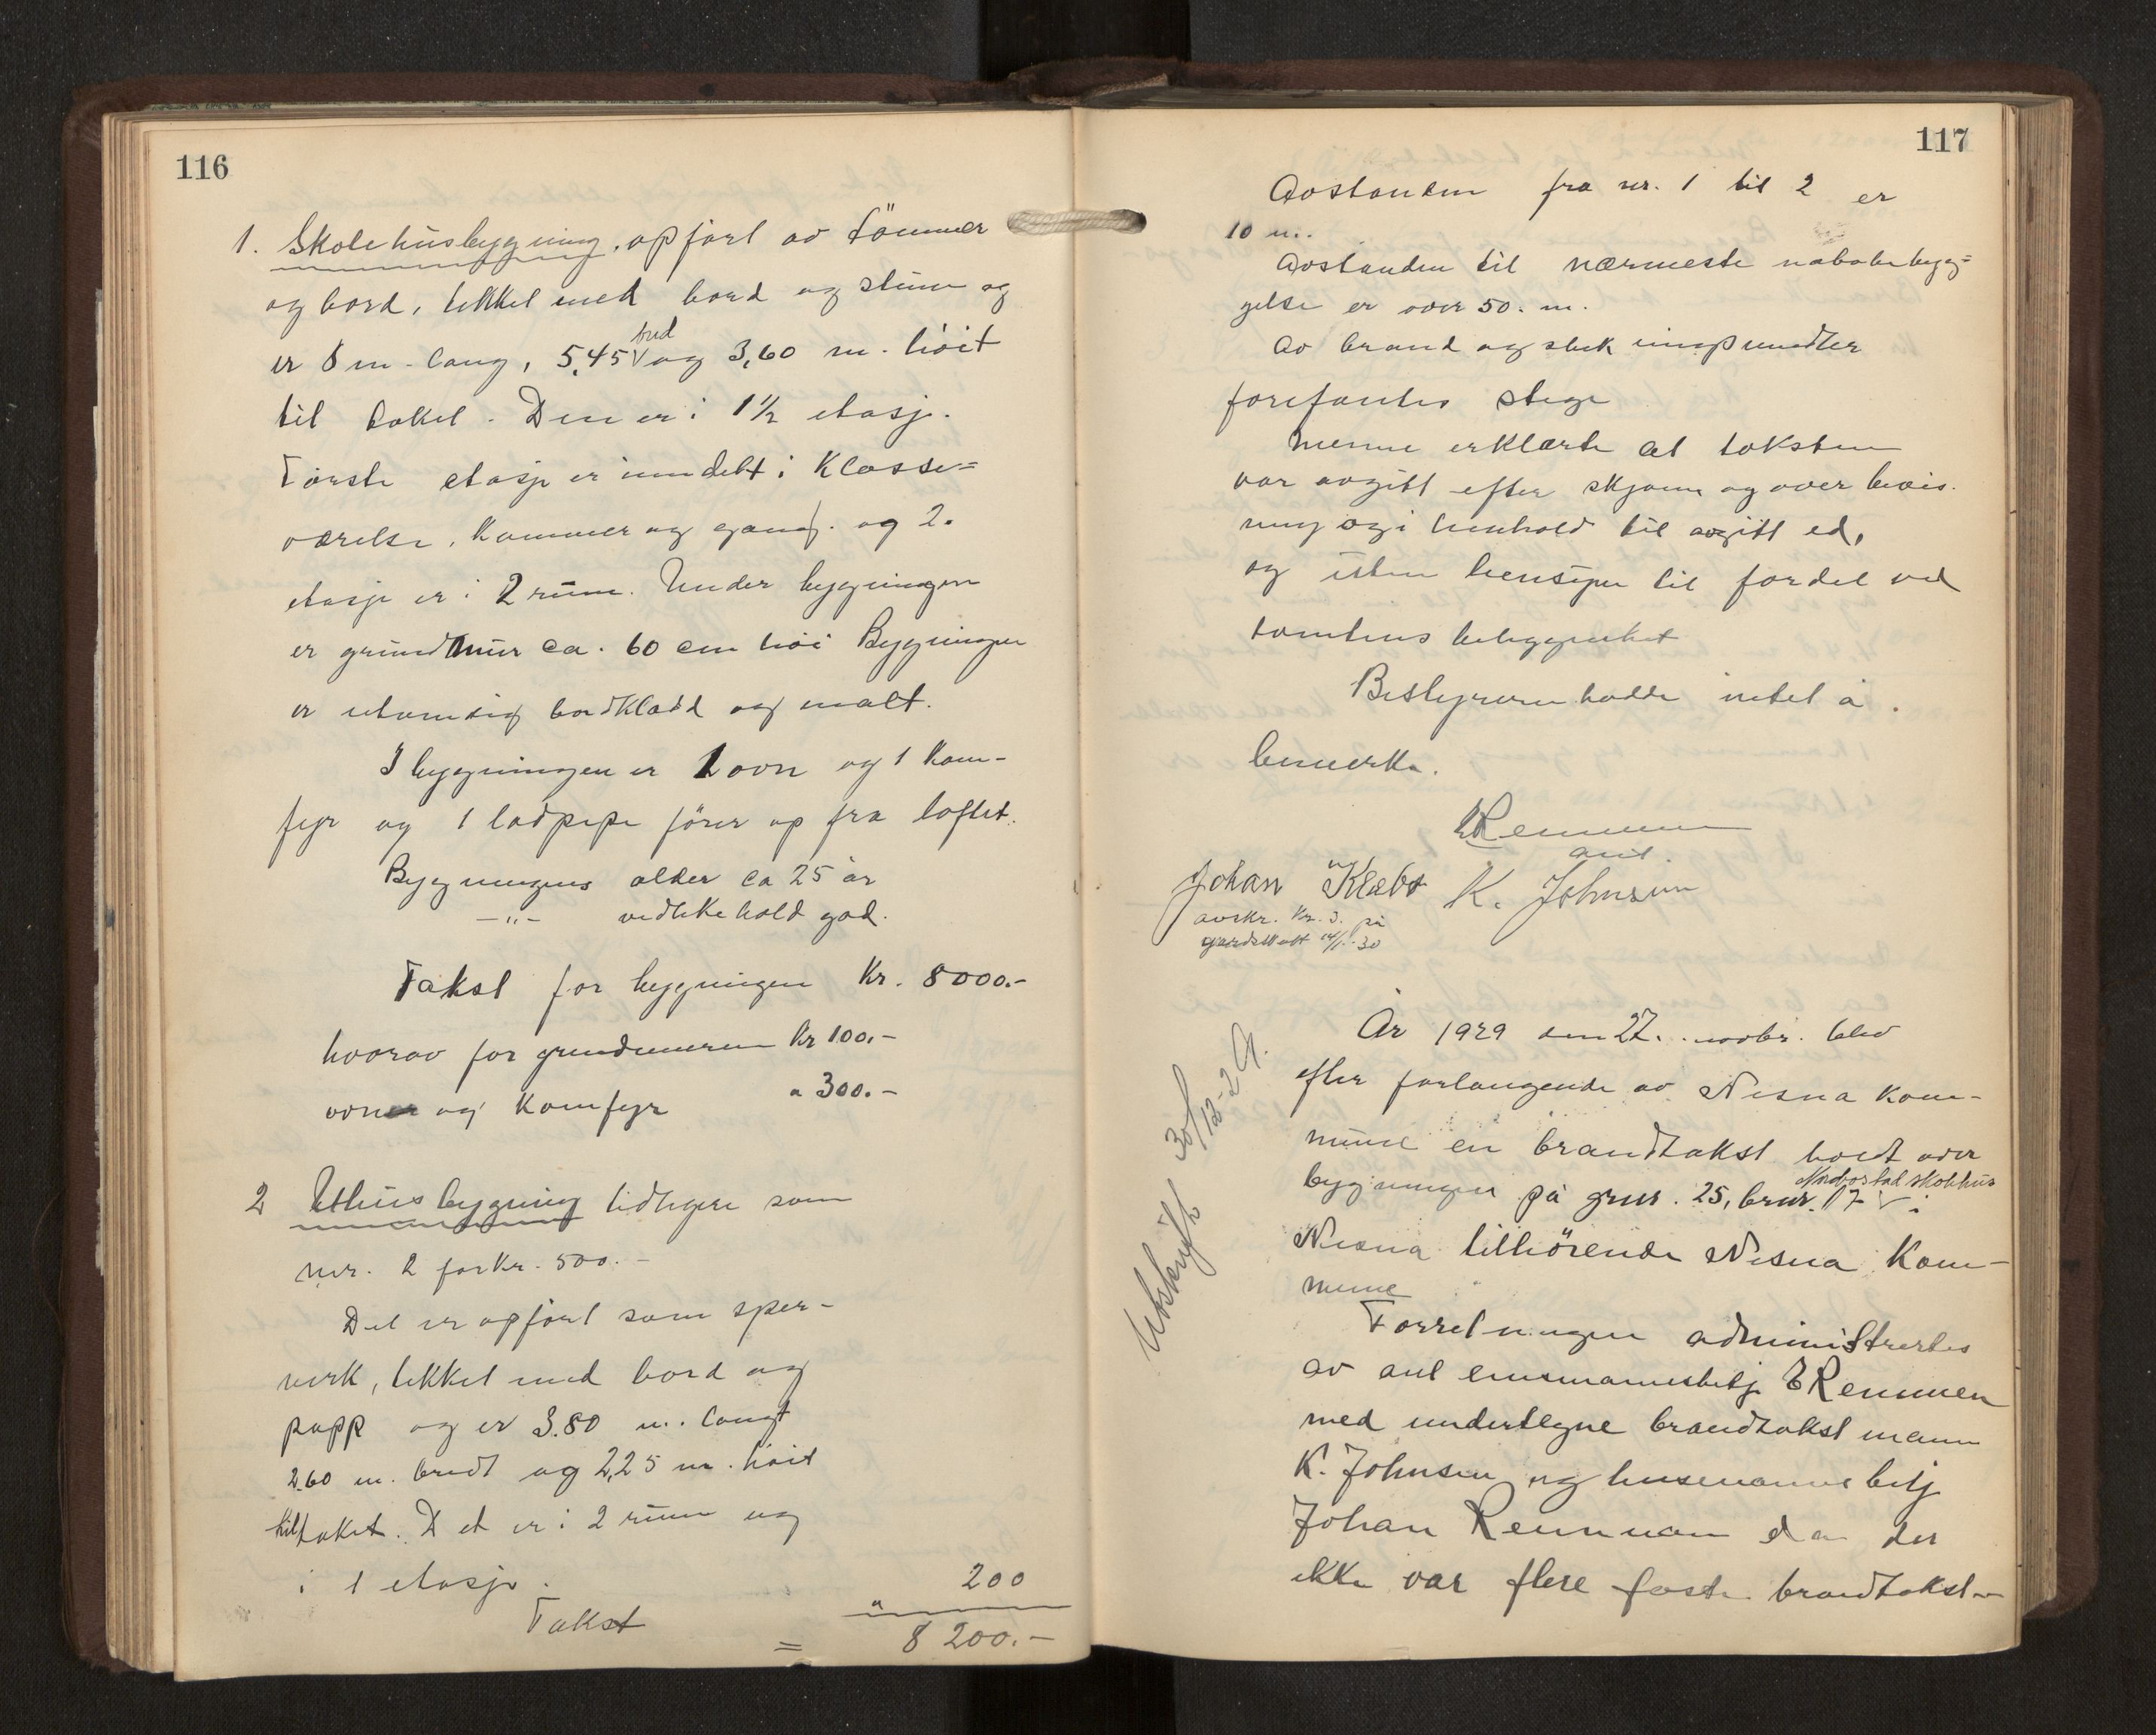 116
1. Skolehusbygning, opført av tømmer
og bord, tekket med bord og stein og
er 8 m. lang, 5,45 bred og 3,60 m. høit
til taket. Den er i 1½ etasje.
Første etasje er inndelt i klasse=
værelse, kammer og gang. og 2.
etasje er i 2 rum. Under bygningen
er grundmur ca. 60 cm høi Bygningen
er utvendig bordklædd og malt.
I bygningen er 1 ovn og 1 kom-
fyr og 1 ladpipe fører op fra loftet.
Bygningens alder ca 25 år
—"— vedlikehold god.
Takst for bygningen Kr. 8000.-
hvorav for grundmuren Kr 100.-
ovner og komfyr " 300.-
2 Uthusbygning tidligere som
nr. 2 for Kr. 500.-
Det er opført som sper-
verk, tekket med bord og
papp og er 3.80 m. langt
2.60 m. bredt og 2,25 m. høit
til taket. Det er i 2 rum og
i 1 etasje.
Takst " 200
= 8200.-
117
Avstanden fra nr. 1 til 2 er
10 m.
Avstanden til nærmeste nabobebyg=
gelse er over 50. m.
Av brand og sluk
forefantes stige
Menne erklærte at taksten
var avgitt efter skjønn og overbevis.
ning og i henhold til avgitt ed,
og uten hensyn til fordel ved
tomtens beliggenhet
Bestyreren hadde intet å
bemerke.
E Remmen
ant.
Johan Klæbo K. Johnsen
avskr. Kr. 3. på
gardskatt 14/1-30
År 1929 den 27. novbr. blev
efter forlangende av Nesna kom-
mune en brandtakst holdt over
bygningen på grnr. 25, brnr. 17 Nordbostad skolehus i
Nesna tilhørende Nesna Kom-
mune
Utskrift 30/12-29.
Forretningen administrertes
av ant lensmannsbetj E Remmen
med undertegne brandtakstmann
K. Johnsen og lensmannsbetj
Johan Remman da der
ikke var flere faste brandtakst-